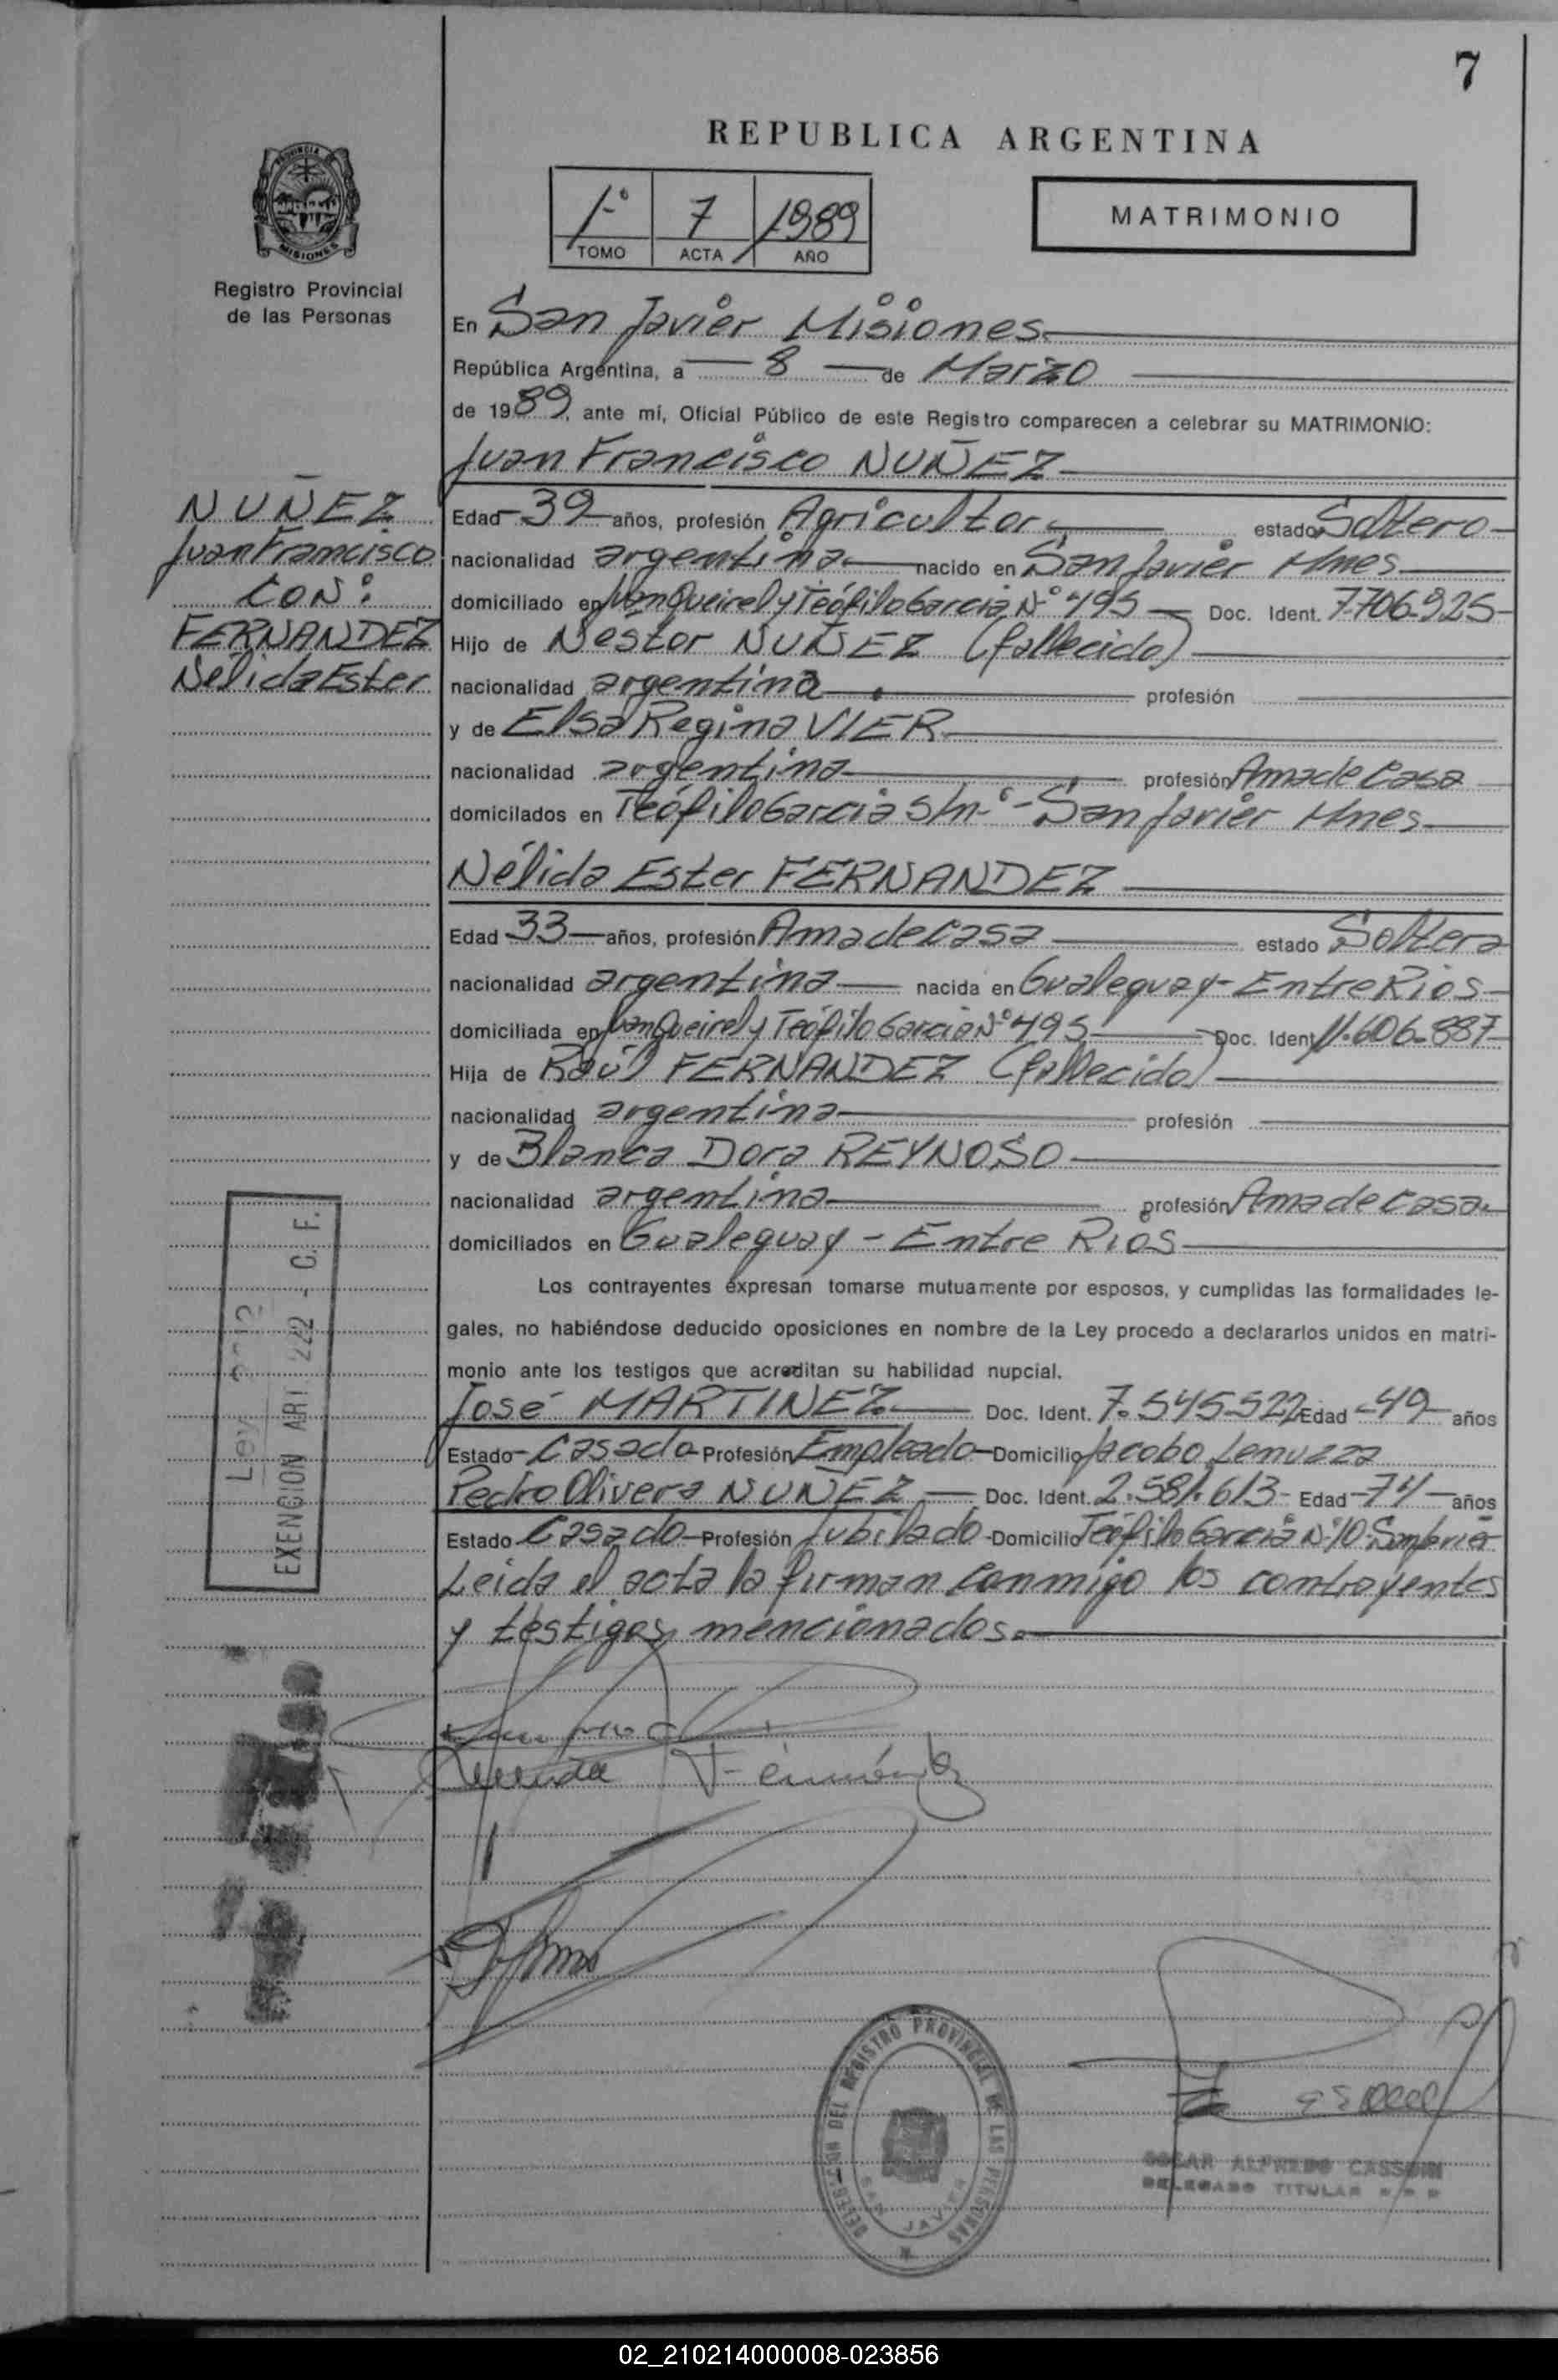 7
REPUBLICA ARGENTINA
1º 7 1989
TOMO ACTA AÑO
MATRIMONIO
PROVINCIA DE
MISIONES
Registro Provincial
de las Personas
En San Javier Misiones
República Argentina, a 8 de Marzo
de 1989, ante mí, Oficial Público de este Registro comparecen a celebrar su MATRIMONIO:
Juan Francisco NUÑEZ
NUÑEZ
Juan Francisco
CON:
FERNANDEZ
Nélida Ester
Edad 39 años, profesión Agricultor estado Soltero
nacionalidad argentina nacido en San Javier Mnes
domiciliado en Juan Queirel y Teófilo Garcia Nº 495 Doc. Ident. 7.706.925
Hijo de Néstor NUÑEZ (fallecido)
nacionalidad argentina profesión
y de Elsa Regina VIER
nacionalidad argentina profesión Ama de Casa
domicilados en Teófilo Garcia S/nº - San Javier Mnes
Nélida Ester FERNANDEZ
Edad 33 años, profesión Ama de casa estado Soltera
nacionalidad argentina nacida en Gualeguay - Entre Rios
domiciliada en Juan Queirel y Teófilo Garcia Nº 495 Doc. Ident 11.606.887
Hija de Raúl FERNANDEZ (fallecido)
nacionalidad argentina profesión
y de Blanca Dora REYNOSO
nacionalidad argentina profesión Ama de casa
domiciliados en Gualeguay - Entre Rios
Los contrayentes expresan tomarse mutuamente por esposos, y cumplidas las formalidades le-
gales, no habiéndose deducido oposiciones en nombre de la Ley procedo a declararlos unidos en matri-
monio ante los testigos que acreditan su habilidad nupcial.
José MARTINEZ Doc. Ident. 7.545.522 Edad 49 años
Estado Casado Profesión Empleado Domicilio Jacobo Lenuzza
Pedro Olivera NUÑEZ Doc. Ident. 2.581.613 Edad 74 años
Estado Casado Profesión Jubilado Domicilio Teófilo Garcia Nº 10 San Javier
Leida el acta la firman conmigo los contrayentes
y testigos mencionados.
Ley
EXENCION ART 222 - C. F.
Fernández
DELEGACION DEL REGISTRO PROVINCIAL DE LAS PERSONAS
SAN JAVIER
OSCAR ALFREDO
DELEGADO TITULAR
02_210214000008-023856